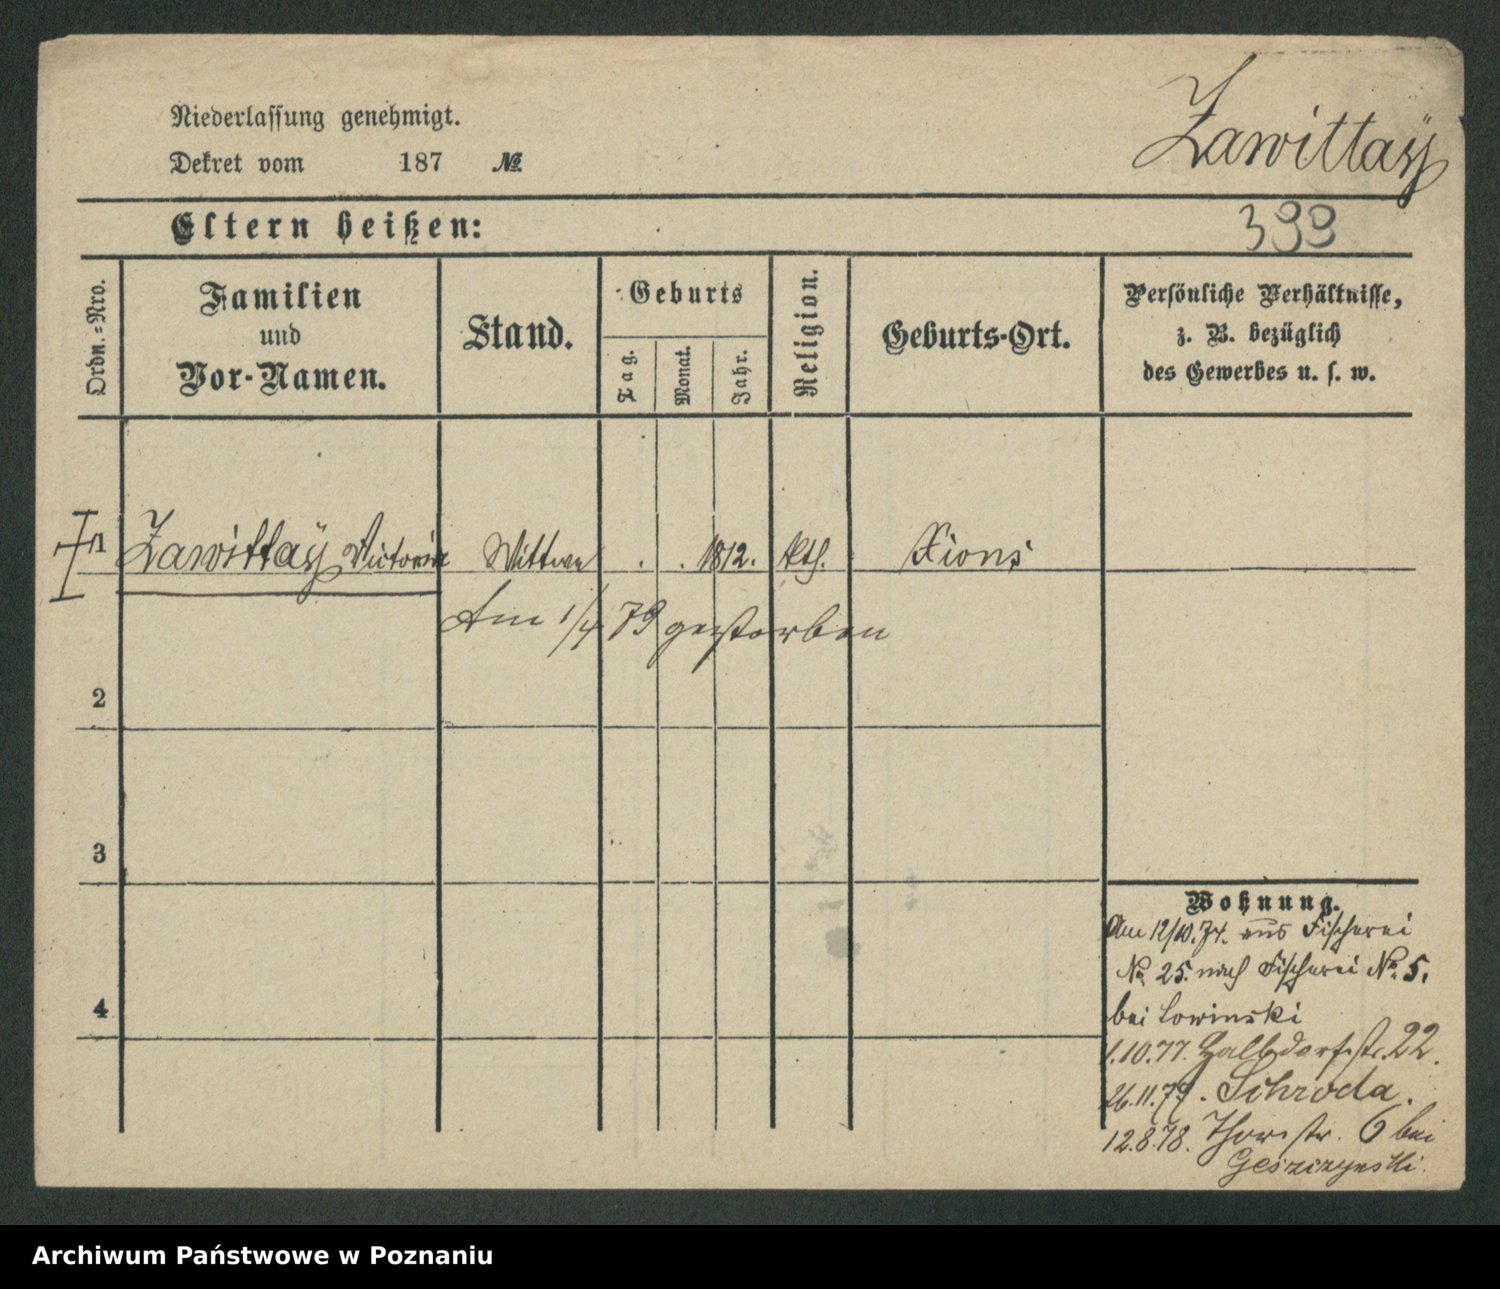 Niederlassung genehmigt.
Dekret vom 187 №
Zawittaÿ
Eltern heißen:
399
Ordn.=Nro.
Familien
und
Vor-Namen.
Stand.
Geburts
Tag.
Monat.
Jahr.
Religion.
Geburts-Ort.
Persönliche Verhältnisse,
z. B. bezüglich
des Gewerbes u. s. w.
1 Zawittaÿ Victoria Wittwe . . 1812. kth. Xions
Am 1/4 79 gestorben
2
3
4
Wohnung.
Am 12/10. 74. aus Fischerei
No. 25. nach Fischerei No. 5.
bei Lowinski
1.10.77. Halbdorfstr. 22.
26.11.77. Schroda.
12.8.78. Thorstr. 6 bei
Geszczynski.
Archiwum Państwowe w Poznaniu